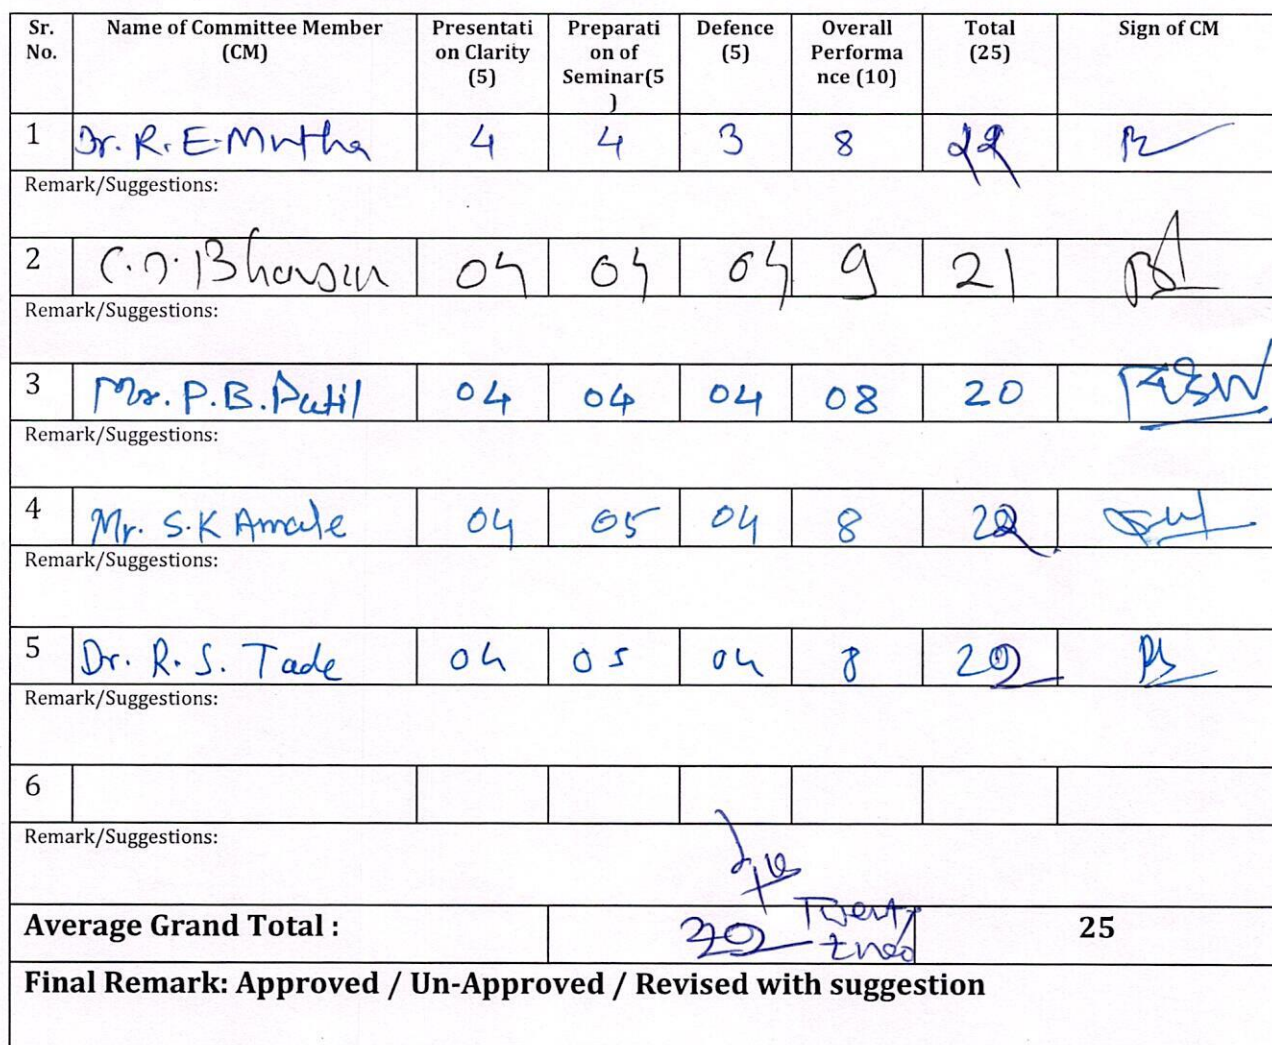 Sr. No. Name of Committee Member (CM) Presentati on Clarity (5) Preparati on of Seminar(5 ) Defence (5) Overall Performa nce (10) Total (25) Sign of CM
1 Dr. R. E. Mutha 4 4 3 8
Remark/Suggestions:
2 C.D. Bhavsar 04 04 04 9 21
Remark/Suggestions:
3 Mr. P.B. Patil 04 04 04 08 20
Remark/Suggestions:
4 Mr. S.K Amale 04 05 04 8 22
Remark/Suggestions:
5 Dr. R. S. Tade 04 05 04 8
Remark/Suggestions:
6
Remark/Suggestions:
Average Grand Total : Twenty 25
Final Remark: Approved / Un-Approved / Revised with suggestion